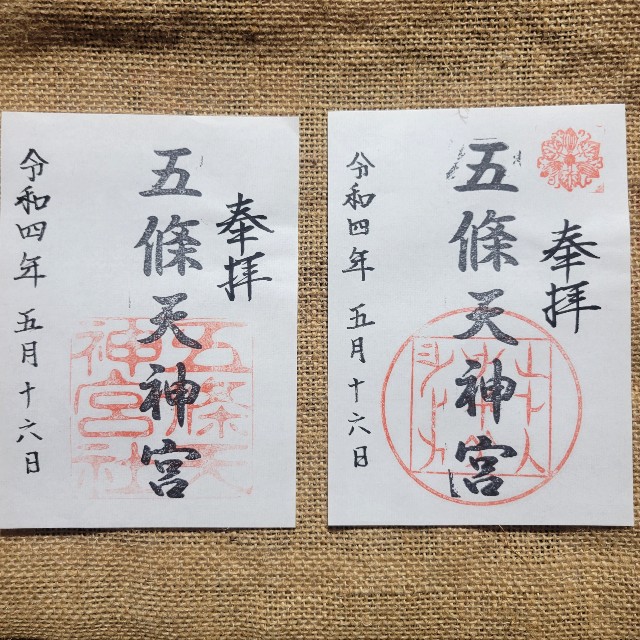 奉拝
五條天神宮
令和四年 五月十六日
五條天
神宮社
奉拝
五條天神宮
令和四年 五月十六日